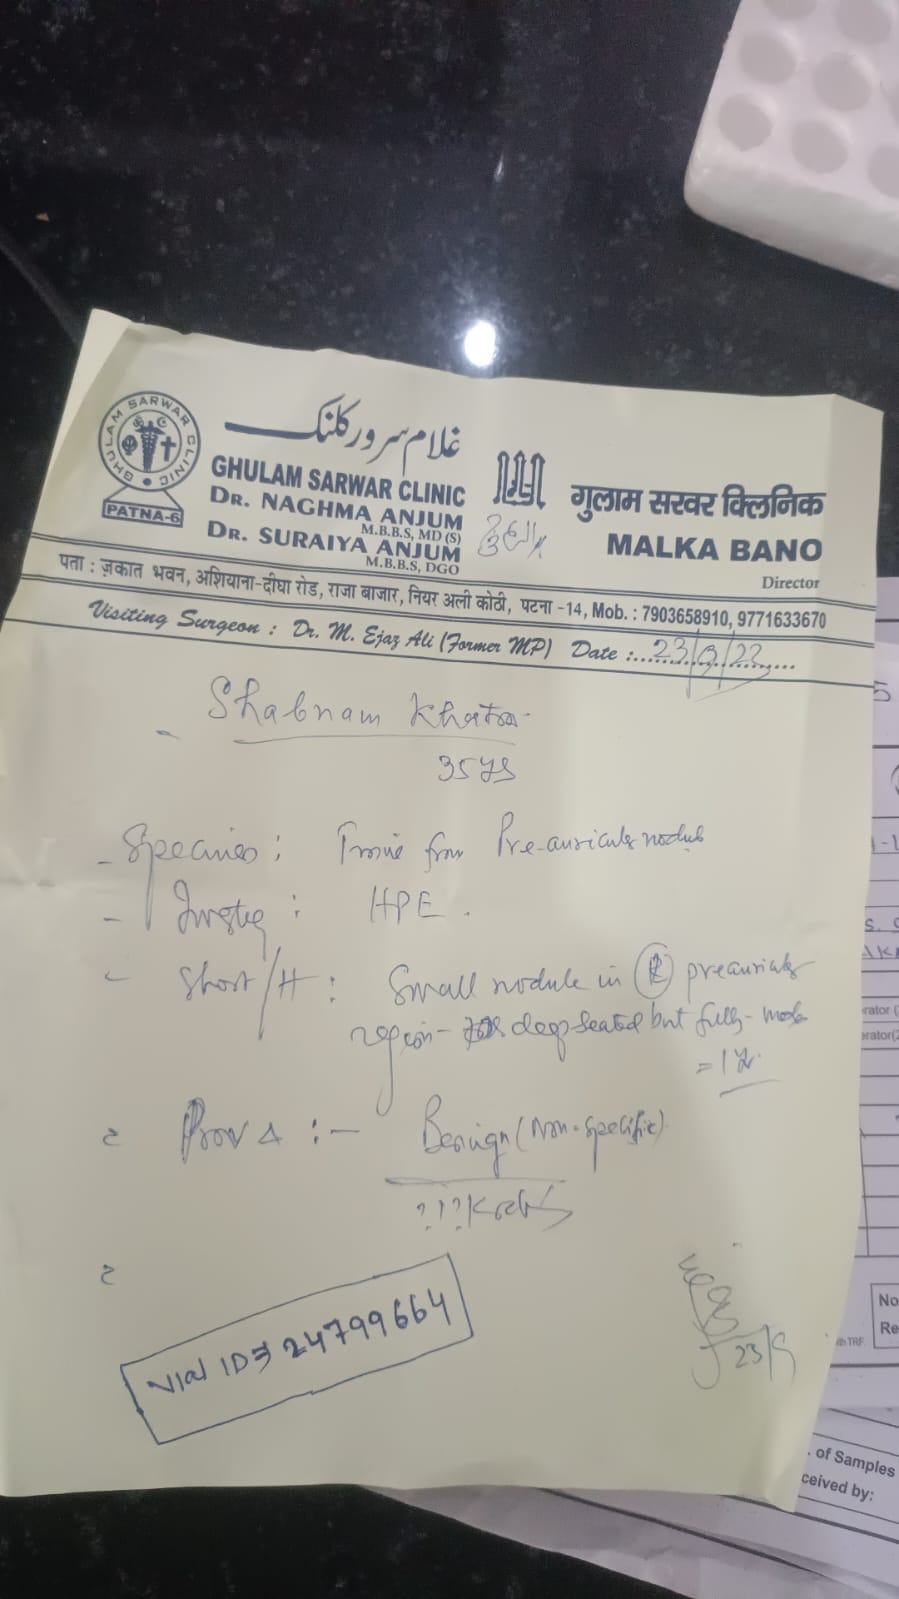 GHULAM SARWAR CLINIC
PATNA-6
غلام سرور کلنک
GHULAM SARWAR CLINIC
DR. NAGHMA ANJUM
M.B.B.S, MD (S)
DR. SURAIYA ANJUM
M.B.B.S, DGO
गुलाम सरवर क्लिनिक
MALKA BANO
Director
पता : ज़कात भवन, अशियाना-दीघा रोड, राजा बाजार, नियर अली कोठी, पटना -14, Mob. : 7903658910, 9771633670
Visiting Surgeon : Dr. M. Ejaz Ali (Former MP) Date : 23/9/23
Shabnam
35 ys
Species : from Pre-auricular nodule
: HPE.
Short/H : Small nodule in (R) preauricular
region deep seated but fully
= 1
Prov Δ :- Benign (Non-specific)
???
Vial ID 24799664
23/9
No
Re
with TRF.
of Samples
ceived by:
rator